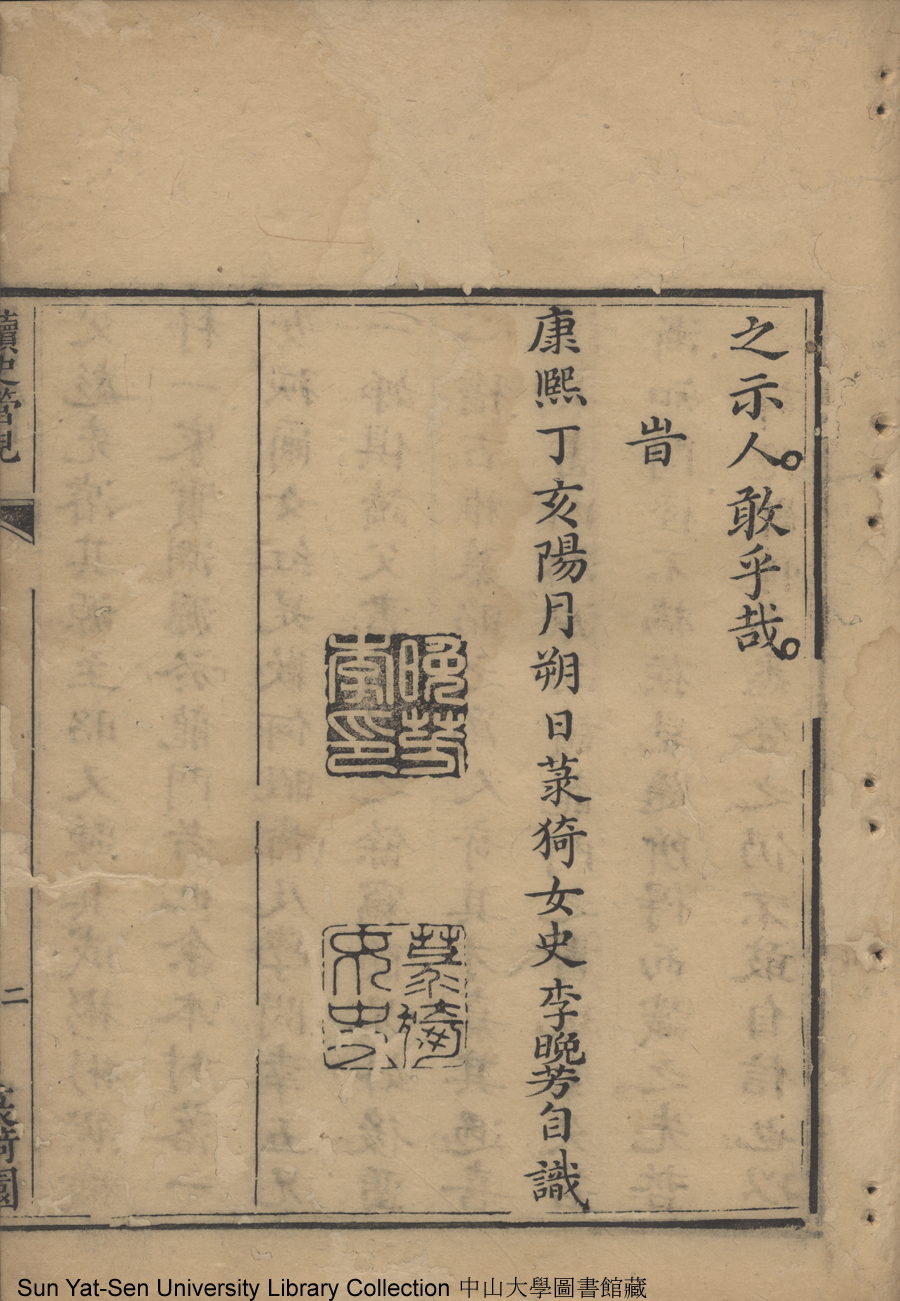 之示人敢乎哉
旹
康熙丁亥陽月朔日菉猗女史李晚芳自識
晚芳
李印
菉猗
女史
讀史管見
二
菉猗園
Sun Yat-Sen University Library Collection 中山大學圖書館藏